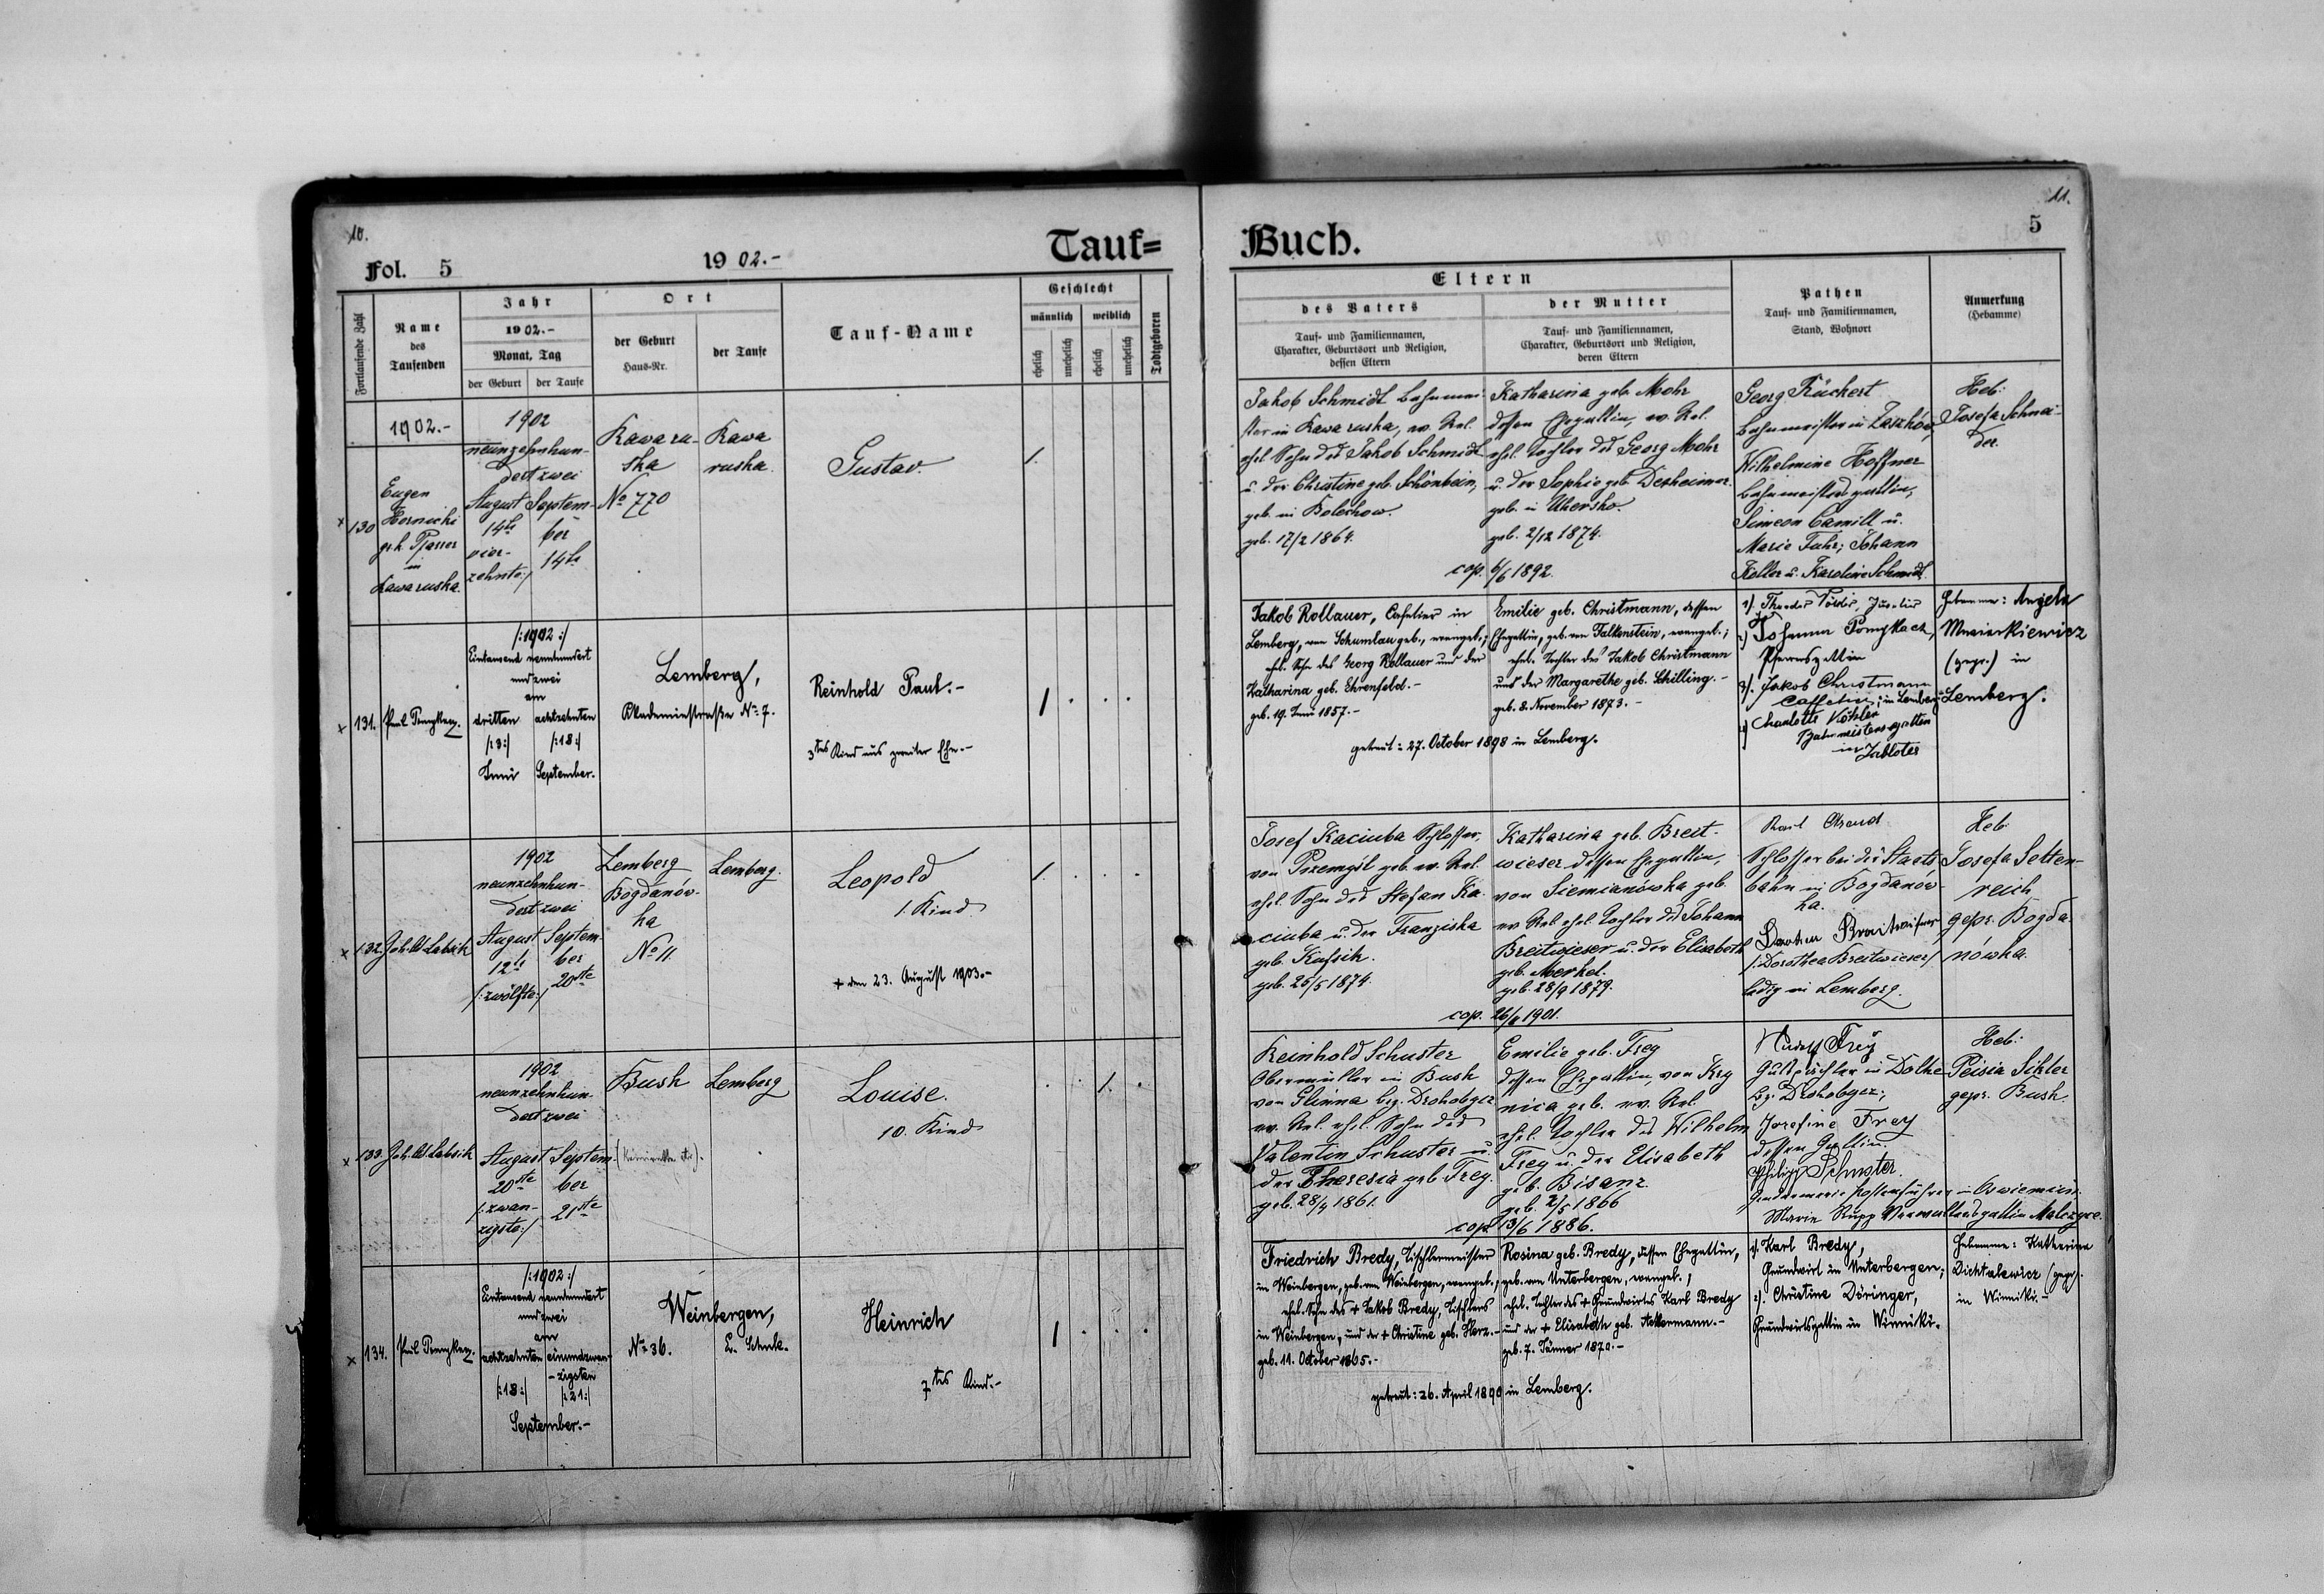 10.
Fol. 5
1902.-
Tauf=
Fortlaufende Zahl
Name
des
Taufenden
Jahr
1902.-
Monat, Tag
der Geburt
der Taufe
Ort
der Geburt
Haus-Nr.
der Taufe
Tauf-Name
Geschlecht
männlich
weiblich
ehelich
unehelich
ehelich
unehelich
Todtgeboren
1902.-
130
Eugen
geh. Pfarrer
in
Kawaruska
1902
neunzehnhun-
dertzwei
August
14te
vier-
zehnte:/
Septem-
ber
14te
Rawa ru-
ska
No 770
Rawa
ruska.
Gustav.
1.
131.
/:1902:/
Eintausend neunhundert
und zwei
am
dritten
/:3:/
Juni
achtzehnten
/:18:/
September.
Lemberg,
Akademiestraße No 7.
Reinhold Paul.-
3tes Kind aus zweiter Ehe.-
1
132.
1902
neunzehnhun-
dertzwei
August
12te
/:zwölfte:/
Septem-
ber
20ste
Lemberg
Bogdanów-
ka
No 11
Lemberg.
Leopold
1. Kind
+ den 23. August 1903.-
1.
133.
1902
neunzehnhun-
dertzwei
August
20ste
/:zwan-
zigste:/
Septem-
ber
21ste
Busk
Lemberg
Louise.
10. Kind
1.
134.
/:1902:/
Eintausend neunhundert
und zwei
am
achtzehnten
/:18:/
einundzwan-
-zigsten
/:21:/
September.-
Weinbergen,
No 36.
Ev. Schule.
Heinrich
7tes Kind.-
1
11.
5
Buch.
Eltern
des Vaters
Tauf- und Familiennamen,
Charakter, Geburtsort und Religion,
dessen Eltern
der Mutter
Tauf- und Familiennamen,
Charakter, Geburtsort und Religion,
deren Eltern
Pathen
Tauf- und Familiennamen,
Stand, Wohnort
Anmerkung
(Hebamme)
Jakob Schmidt Bahnmei-
ster in Rawa ruska, ev. Rel.
ehel. Sohn des Jakob Schmidt
u. der Christine geb. Schönbein,
geb. in Bolechow.
geb. 17/2 1864.
Katharina geb. Mohr
dessen Ehegattin, ev. Rel.
ehel. Tochter des Georg Mohr
u. der Sophie geb. Desheimer.
geb. in Uhersko.
geb. 2/12 1874.
cop. 6/6 1892.
Georg Rückert
Bahnmeister in Zaszków,
Wilhelmine Hoffner
Bahnmeistersgattin,
Simeon Camill u.
Marie Fuhr; Johann
Keller u. Karoline Schmidt
Heb:
Josefa Schnei-
der.
Jakob Rollauer, Cafetier in
Lemberg, von Schumlau geb., evangel.;
ehel. Sohn des Georg Rollauer und der
Katharina geb. Ehrenfeld.-
geb. 19. Juni 1857.-
Emilie geb. Christmann, dessen
Ehegattin, geb. von Falkenstein, evangel.;
ehel. Tochter des Jakob Christmann
und der Margarethe geb. Schilling.-
geb. 8. November 1873.-
getraut: 27. October 1898 in Lemberg.
1). Juvelier
2) Johanna Pomykacz,
Pfarrersgattin
3). Jakob Christmann
Caffetier, in Lemberg
4) Charlotte Köhler
Bahnmeistersgattin
in
Hebamme: Angela
(gepr.) in
Lemberg.
Josef Kaciuba Schlosser,
von Przemysl geb. ev. Rel.
ehel. Sohn des Stefan Ka-
ciuba u. der Franziska
geb. Kufsik.
geb. 25/5 1874.
Katharina geb. Breit-
wieser dessen Ehegattin,
von Siemianówka geb.
ev. Rel. ehel. Tochter des Johann
Breitwieser u. der Elisabeth
geb. Merkel.
geb. 28/9 1879.
cop. 26/ 1901.
Karl
Schlosser bei der Staats-
bahn in Bogdanów-
ka.
/:Dorothea Breitwieser/
ledig in Lemberg.
Heb:
Josefa Setten-
reich
gepr. Bogda-
nówka.
Reinhold Schuster
Obermüller in Busk
von Glinna bzg. Drohobycz
ev. Rel. ehel. Sohn des
Valentin Schuster u.
der Theresia geb. Frey.
geb. 28/4 1861.
Emilie geb. Frey
dessen Ehegattin, von Kry
nica geb. ev. Rel.
ehel. Tochter des Wilhelm
Frey u. der Elisabeth
geb. Bisanz.
geb. 2/5 1866
cop. 13/6 1886.
Rudolf Frey
Gutspächter in Dolhe
bzg. Drohobycz;
Josefine Frey
dessen Gattin.
Philipp Schuster.
Gendarmerie Postenführer in Oswiemcim.
Marie Rupp Verwaltersgattin Malczyce.
Heb:
Peisia Sihler
gepr. Busk.
Friedrich Bredy, Tischlermeister
in Weinbergen, geb. von Weinbergen, evangel.;
ehel. Sohn des + Jakob Bredy, Tischlers
in Weinbergen, und der + Christine geb. Herz.-
geb. 11. October 1865.-
Rosina geb. Bredy, dessen Ehegattin,
geb. von Unterbergen, evangel.;
ehel. Tochter des + Grundwirtes Karl Bredy
und der + Elisabeth geb. Ackermann.-
geb. 7. Jänner 1870.-
getraut: 26. April 1890 in Lemberg.
1). Karl Bredy,
Grundwirt in Unterbergen;
2). Christine Döringer,
Grundwirtsgattin in Winniki.
Hebamme: Katharina
(gepr.)
in Winniki.-